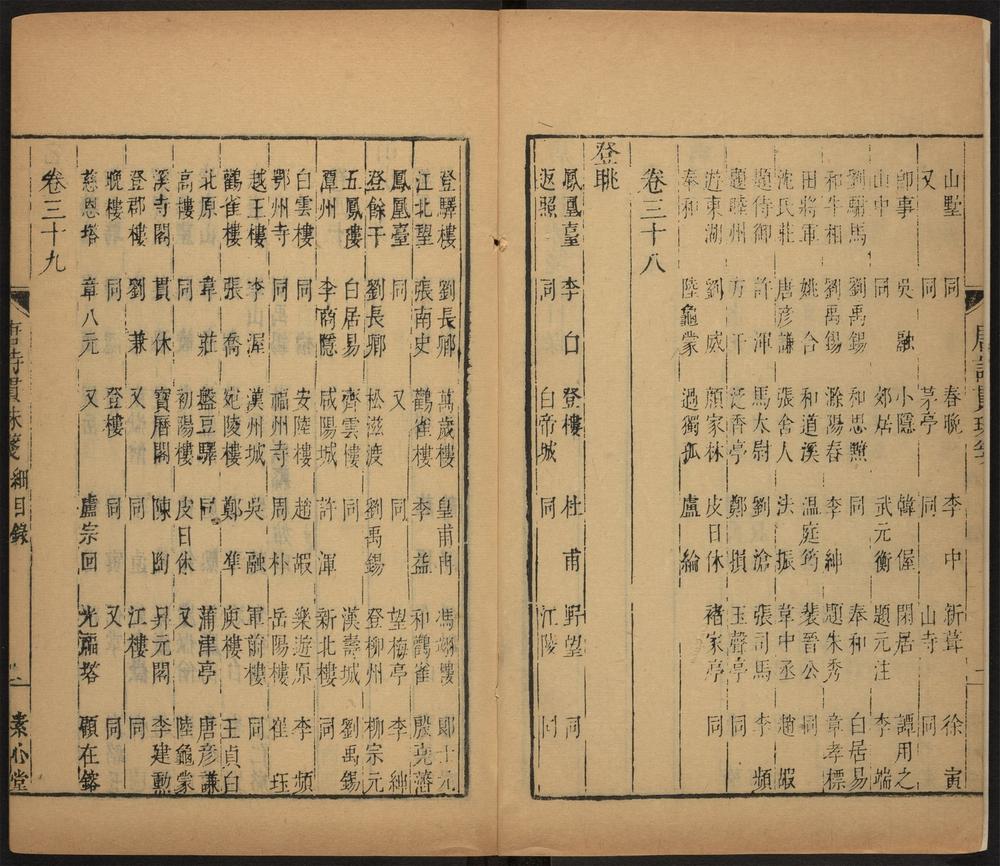 山墅 同 春晚 李中 新葺 徐寅
又 同 茅亭 同 山寺 同
即事 吳融 小隱 韓偓 閑居 譚用之
山中 同 郊居 武元衡 題元注 李端
劉駙馬 劉禹錫 和思黯 同 奉和 白居易
和牛相 劉禹錫 滁陽春 李紳 題朱秀 章孝標
田將軍 姚合 和道溪 溫庭筠 裴晉公 同
沈氏莊 唐彦謙 張舍人 法振 韋中丞 趙嘏
題侍御 許渾 馬太尉 劉滄 張司馬 李頻
題睦州 方干 泛香亭 鄭損 玉聲亭 同
遊東湖 劉威 顔家林 皮日休 褚家亭 同
奉和 陸龜蒙 過獨孤 盧綸
卷三十八
登眺
鳳凰臺 李白 登樓 杜甫 野望 同
返照 同 白帝城 同 江陵 同
登驛樓 劉長卿 萬歲樓 皇甫冉 馮翊樓 郎士元
江北望 張南史 鸛雀樓 李益 和鸛雀 殷堯藩
鳳凰臺 同 又 同 望梅亭 李紳
登餘干 劉長卿 松滋渡 劉禹錫 登柳州 柳宗元
五鳳樓 白居易 齊雲樓 同 漢壽城 劉禹錫
潭州 李商隱 咸陽城 許渾 新北樓 同
白雲樓 同 安陵樓 趙嘏 樂遊原 李頻
鄂州寺 同 福州寺 周朴 岳陽樓 崔珏
越王樓 李渥 漢州城 吳融 軍前樓 同
鸛雀樓 張喬 宛陵樓 鄭準 庾樓 王貞白
北原 韋莊 盤豆驛 同 蒲津亭 唐彦謙
高樓 同 初陽樓 皮日休 又 陸龜蒙
溪寺閣 貫休 寶曆閣 陳陶 昇元閣 李建勲
登郡樓 劉兼 又 同 江樓 同
晚樓 同 登樓 同 又 同
慈恩塔 章八元 又 盧宗回 光福塔 顧在鎔
卷三十九
唐詩貫珠箋 細目錄 素心堂